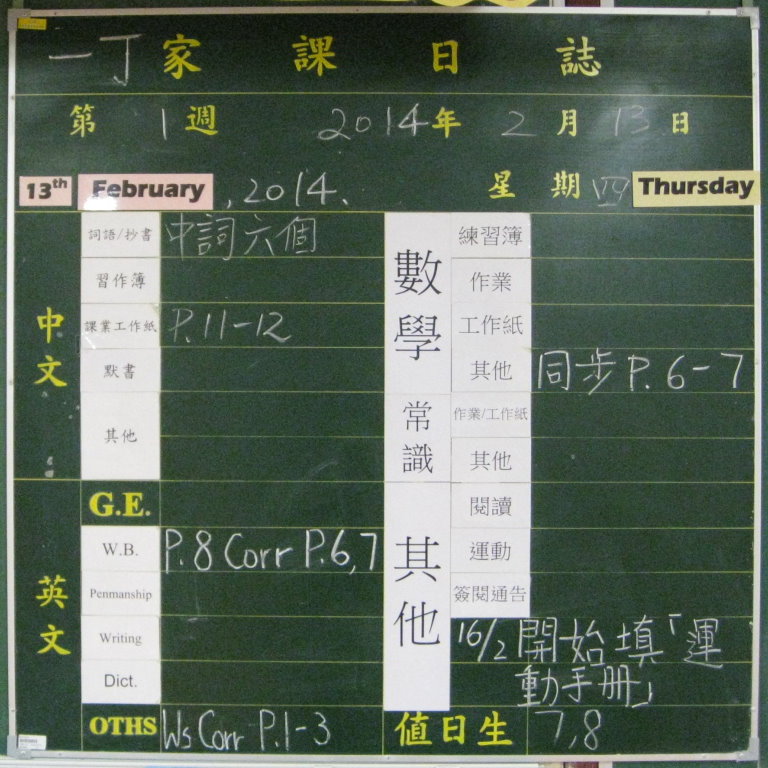 一丁家課日誌
第1週 2014年2月13日
13th February, 2014. 星期四 Thursday
中文
詞語/抄書 中詞六個
習作簿
課業工作紙 P.11-12
默書
其他
英文
G.E.
W.B. P.8 Corr P.6,7
Penmanship
Writing
Dict.
OTHS Ws Corr P.1-3
數學
練習簿
作業
工作紙
其他 同步 P.6-7
常識
作業/工作紙
其他
其他
閱讀
運動
簽閱通告
16/2 開始填「運
動手冊」
值日生 7,8